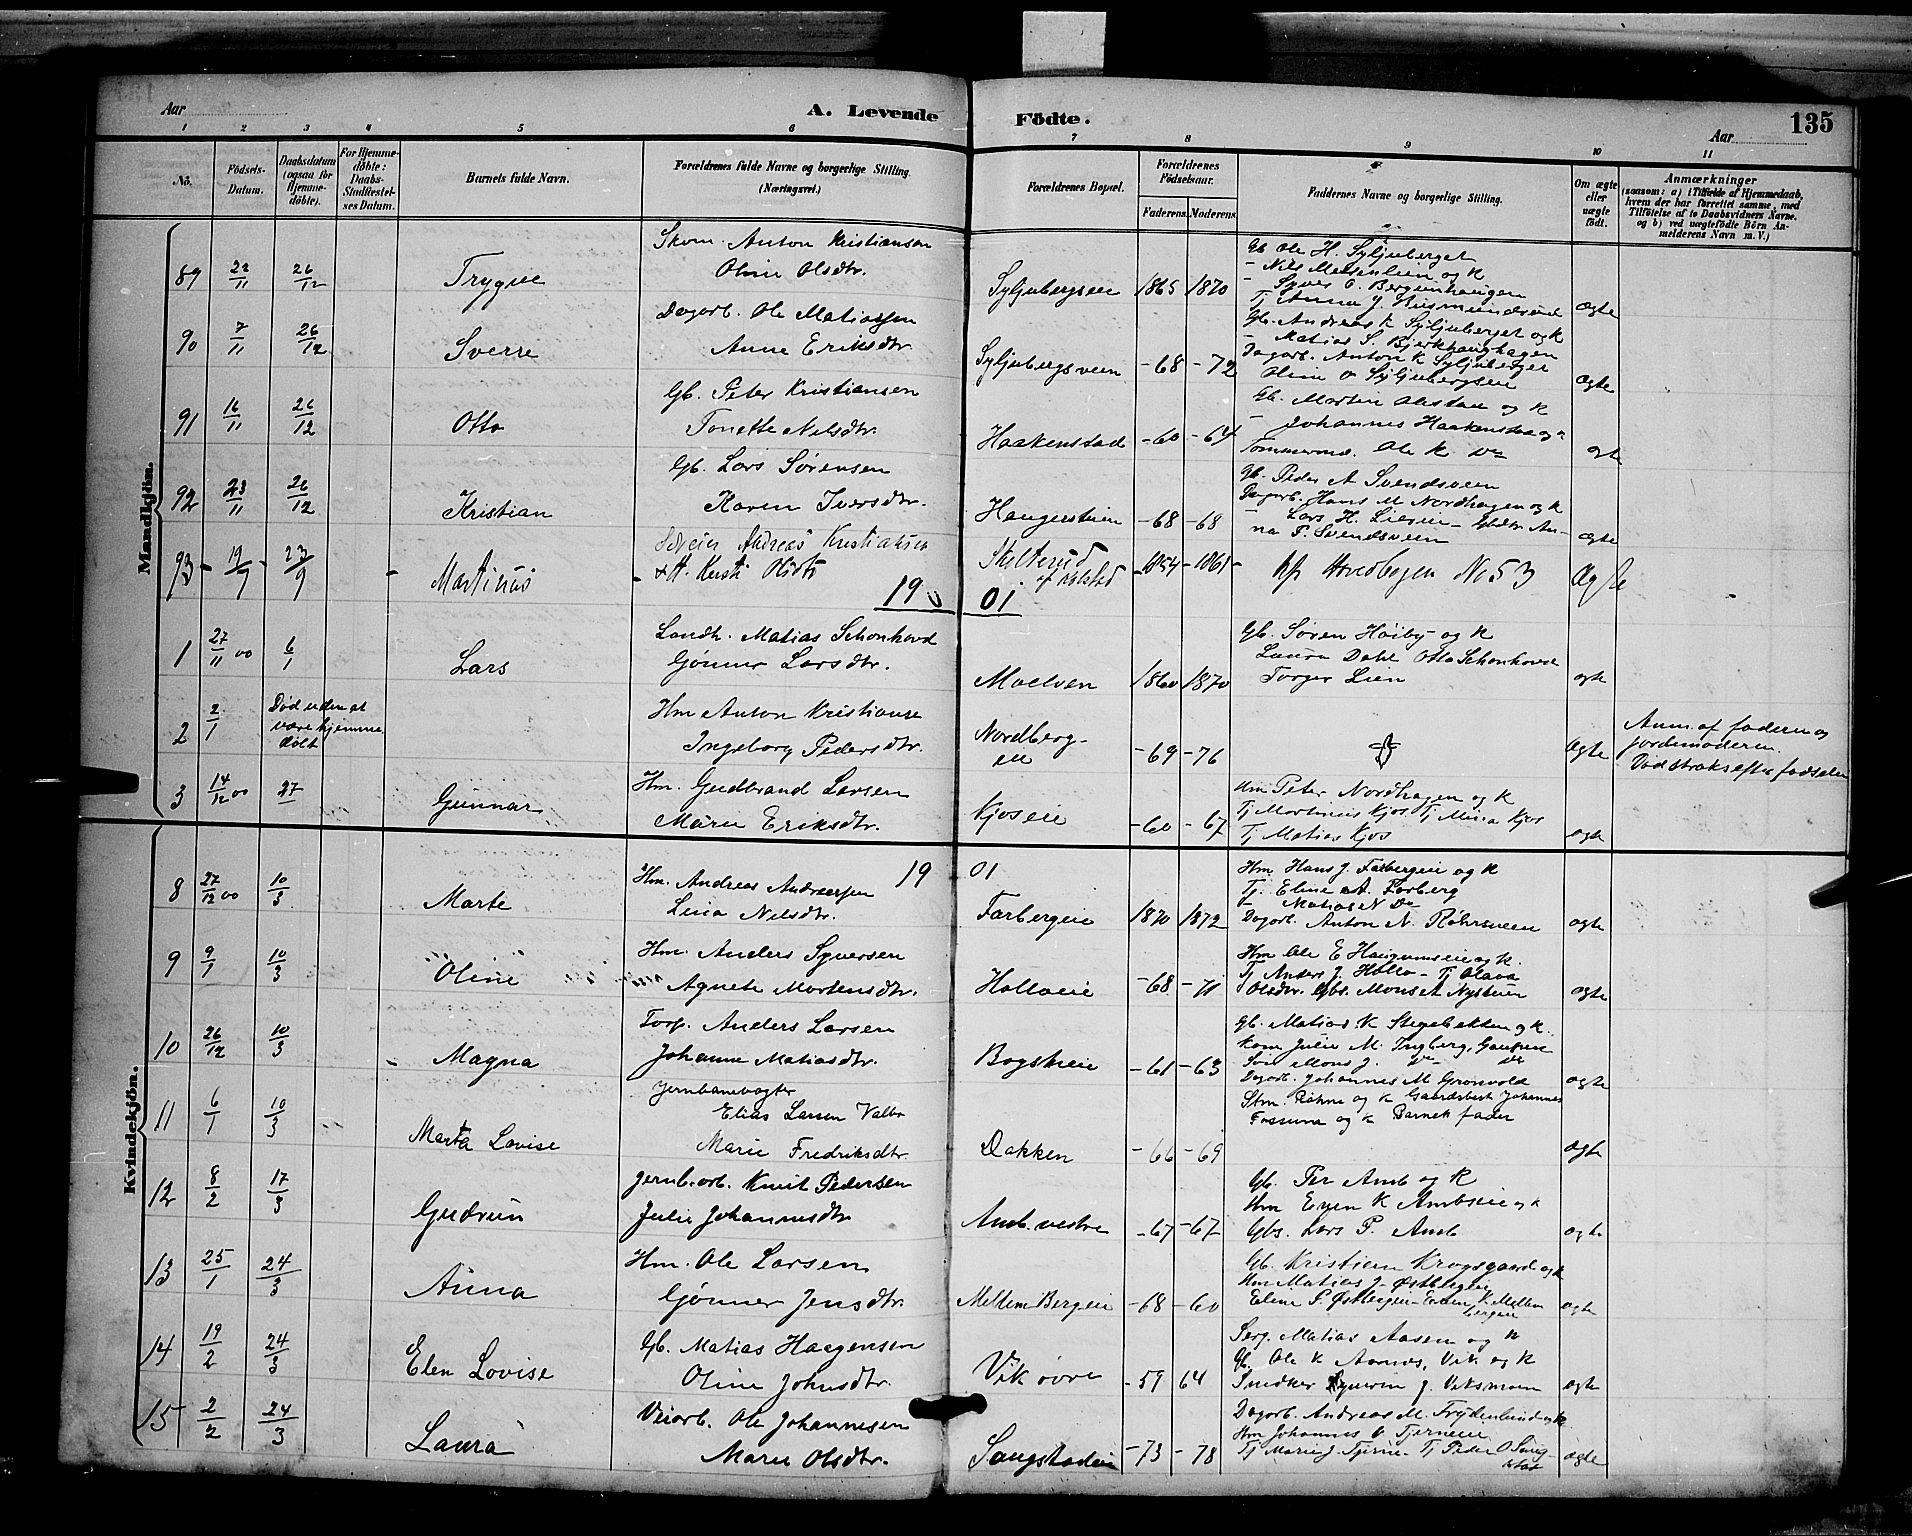 Aar
A. Levende Födte.
Aar
135
1 2 3 4 5 6 7 8 9 10 11
No.
Födsels-Datum.
Daabsdatum (ogsaa for Hjemme-döbte).
For Hjemme-döbte: Daabs-Stadfæstel-ses Datum.
Barnets fulde Navn.
Forældrenes fulde Navne og borgerlige Stilling. (Næringsvei.)
Forældrenes Bopæl.
Forældrenes Födselsaar. Faderens. Moderens.
Faddernes Navne og borgerlige Stilling.
Om ægte eller uægte födt.
Anmærkninger
(saasom: a) i Tilfælde af Hjemmedaab, hvem der har forrettet samme, med Tilföielse af to Daabsvidners Navne. og b) ved uægtefödte Börn Anmelderens Navn m. V.)
Mandkjön.
89 22/11 26/12 Trygve Skom. Anton Kristiansen
Oline Olsdtr. Syljubergseie 1865 1870 Gb. Ole H. Syljuberget
ægte
90 7/11 26/12 Sverre Dagarb. Ole Matiassen
Anne Eriksdtr. Syljubergsveen -68 -72 Gb. Andreas K Syljuberget og K
Matias S. Bjerkehaughagen
Dagarb. Anton K Syljuberget
Oline O Syljubergseie ægte
91 16/11 26/12 Otto Gb. Peter Kristiansen
Tonette Nilsdtr. Haakenstad -60 -64 Gb. Martin Alstad og K
- Johannes Haakenstad og K
Tømmermd. Ole K Do ægte
92 23/11 26/12 Kristian Gb. Lars Sørensen
Karen Iversdtr. Haugersteien -68 -68 Gb. Peder A Svendsveen
Dagarb. Hans M Nordhagen og K
- Lars H. Lieseie - Gbdtr. An-
na P. Svendsveen ægte
93 19/7 23/9 Martinus Andreas Kristiansen
Kersti Olsdtr Skilterud 1854 1861 Hovedbogen No 53 Ægte
1901
1 27/11 00 6/1 Lars Landh. Matias Schonhovd
Gønner Larsdtr. Moelven 1860 1870 Gb. Søren Høiby og K
Laura Dahl Otto Schonhovd
Torger Lien ægte
2 2/1 Død uden at
være hjemme
døbt Hm Anton Kristianse
Ingeborg Pedersdtr. Nordberg-
eie -69 -76 Ægte Anm. af faderen og
jordemoderen.
Død straks efter fødselen
3 14/12 00 27 Gunnar Hm. Gudbrand Larsen
Marie Eriksdtr. Kjoseie -60 -67 Hm Peter Nordhagen og K
Tj Martinius Kjos Tj Mina Kjos
Tj Matias Kjos ægte
Kvindekjön.
1901
8 27/12 00 10/3 Marte Hm. Andreas Andreassen
Lina Nilsdtr. Farbergeie 1870 1872 Hm Hans J. Farbergeie og K
Tj. Eline A. Farberg
- Matias N Do
Dagarb. Anton N. Røhrsveen ægte
9 9/1 10/3 Oline Hm. Anders Syversen
Agnete Mortensdtr. Holloeie -68 -71 Hm Ole E Haugumseie og K.
Tj Anders J. Hollo - Tj Olava
Olsdtr. Gbs. Mons A Nysteien ægte
10 26/12 10/3 Magna Torp. Anders Larsen
Johanne Matiasdtr. Bogskeie -61 -63 Gb. Matias K Stigebakken og K.
Dagarb. Johannes M Grønvold ægte
11 6/1 10/3 Marta Lovise Jernbanevogter
Elias Larsen Valbr
Marie Fredriksdtr. Dakken -66 -69 Stm. Røhne og K Gaardsbest Johannes
Fossum og K Barnets fader ægte
12 8/2 17/3 Gudrun Jernb.arb. Knut Pedersen
Julie Johannesdtr Amb. vestre -67 -67 Gb. Per Amb og K
Hm Even K Ambseie og K
Gbs. Lars P. Amb ægte
13 25/1 24/3 Anna Hm. Ole Larsen
Gønner Jensdtr. Mellem Bergeie -68 -60 Gb. Kristian Krogsgaard og K
Hm Matias J. Østbergeie
Eline P. Østbergeie - Even K Mellem
bergeie ægte
14 19/2 24/3 Elen Lovise Gb. Matias Haagensen
Oline Johnsdtr. Vik øvre -59 64 Serg. Matias Aasen og K
Gb. Ole K Aarnes, Vik og K
Snedker Syverin J. Viksmoen ægte
15 2/2 24/3 Laura Veiarb. Ole Johannesen
Marie Olsdtr. Saugstadeie -73 -78 Dagarb. Andreas M. Frydenlund og K.
Hm Johannes O Tjerneie
Tj Marie J. Tjerne - Tj Peder O Saug-
stad ægte